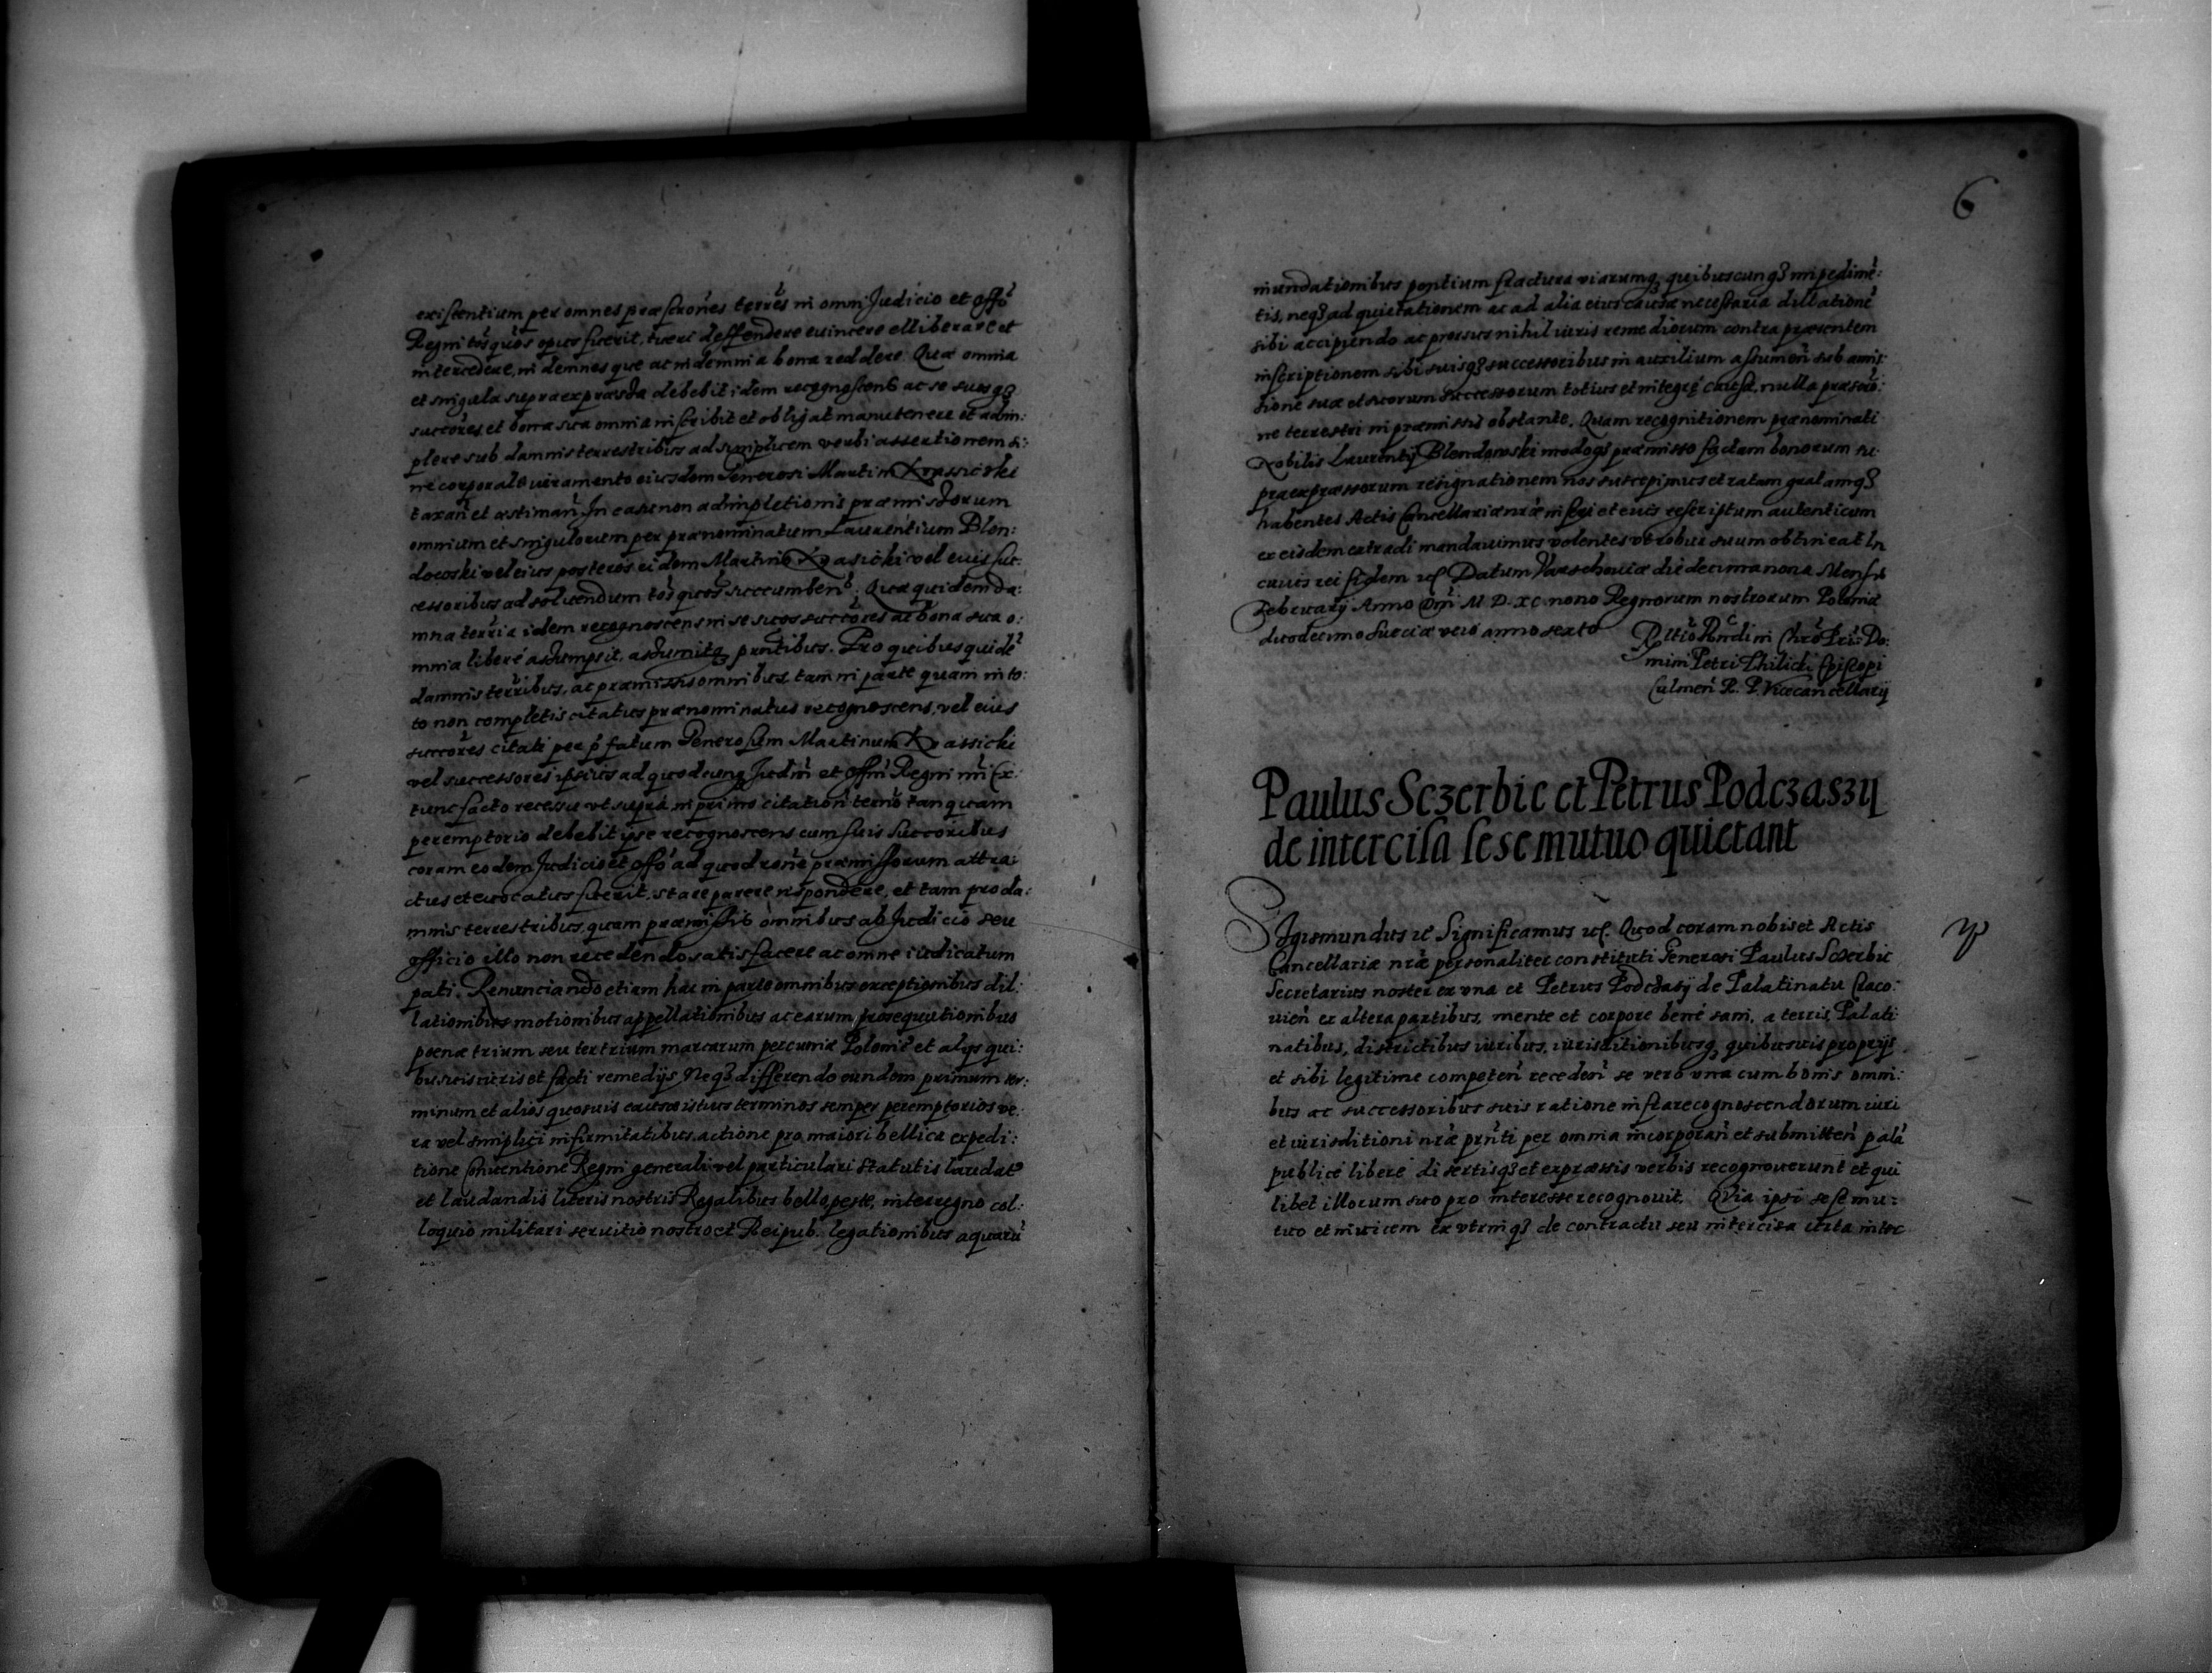 existentium per omnes præscrōnes terrēs in omni Judicio et offō
Regni totqūos opus fuerit, tueri deffendere euincere elliberare et
intercedere, indemnes que ac indemnia bona reddere. Quæ omnia
et singula supra expræssa debebit idem recognoscens ac se suosq3
succōres, et bona sua omnia inscribit et obligat manutenere et adim:
plere sub damnis terrestribus ad simplicem verbi assertionem si:
ne corporali iuramento eiusdem Generosi Martini Krassicki
taxan̄ et æstiman̄. In casu non adimpletionis præmissorum
omnium et singulorum per prænominatum Laurentium Blen:
dowski vel eius posteros eidem Martino Krasicki vel eius suc:
cessoribus ad soluendum tot quot succumben̄. Quæ quidem da:
mna terr̄ia idem recognoscens in se suos succōres ac bona sua o:
mnia liberé assumpsit, assumitq3 pn̄tibus. Pro quibus quidē
damnis terr̄ibus, ac præmissis omnibus, tam in parte quam in to:
to non completis citatus prænominatus recognoscens, vel eius
succōres citati per p̄fatum Generosum Martinum Krassicki
vel successores ipsius ad quodcunq3 Judm̄ et offm̄ Regni nr̄i Ex:
tunc facto recessu vt supra, in primo citation̄ termō tanquam
peremptorio debebit ipse recognoscens cum suis succoribus
coram eodem Judicio et offō ad quod rōne præmissorum attra:
ctus et euocatus fuerit, stare parere respondere, et tam pro da:
mnis terrestribus, quam præmissis omnibus ab Judicio seu
officio illo non recedendo satisfacere ac omne iudicatum
pati. Renunciando etiam hac in parte omnibus exceptionibus dil:
lationibus motionibus appellationibus ac earum prosequutionibus
poenæ trium seu ter trium marcarum pecuniæ Poloniē et alijs qui:
busuis iuris et facti remedijs Neq3 differendo eundem primum ter:
minum et alios quosuis causæ istius terminos semper peremptorios ve:
ra vel simplici infirmitatibus, actione pro maiori bellica expedi:
tione Conuentione Regni generali vel particulari statutis laudat̄
et laudandis literis nostris Regalibus bello, peste, interregno col:
loquio militari seruitio nostro et Reipub. legationibus aquarū
6
inundationibus pontium fractura viarumq3 quibuscunq3 impedimē:
tis, neq3 ad quietationem ac ad alia eius causæ necessaria dillationē
sibi accipiendo ac prorsus nihil iuris remediorum contra præsentem
inscriptionem sibi suisq3 successoribus in auxilium assumen̄ sub amis:
sione suæ et suorum successorum totius et integrę causæ, nulla præscrō:
ne terrestri in præmissis obstante. Quam recognitionem prænominati
Nobilis Laurentij Blendowski modoq3 præmisso factam bonorum su:
praexpræssorum resignationem nos suscepimus et ratam gratamq3
habentes Actis Cancellariæ nr̄æ inseri et eius rescriptum autenticum
ex eisdem extradi mandauimus volentes vt robur suum obtineat In
cuius rei fidem etc. Datum Varschouiæ die decima nona Mensis
February Anno Dn̄i M. D. XC nono Regnorum nostrorum Poloniæ
duodecimo Sueciæ vero anno sexto
Rltiō Rn̄di in Chrō Pri͞s: Do:
mini Petri Thilicki Episcopi
Culmen̄ R. P. Vicecancellarij
Paulus Sczerbic et Petrus Podczaszy
de intercisa sese mutuo quietant
Sigismundus etc Significamus etc. Quod coram nobis et Actis
Cancellariæ nr̄æ personaliter constituti Generosi Paulus Sczerbic
Secretarius noster ex vna et Petrus Podczasij de Palatinatu Craco:
uien̄ ex altera partibus, mente et corpore bené sani, a terris, Palati:
natibus, districtibus iuribus, iurisditionibusq3 quibusuis proprijs
et sibi legitime competen̄ receden̄ se vero vna cum bonis omni:
bus ac successoribus suis ratione infra recognoscendorum iuri
et iurisditioni nr̄æ prn̄ti per omnia incorporan̄ et submitten̄ palā
publicé liberé disertisq3 et expræssis verbis recognouerunt et qui
libet illorum suo pro interesse recognouit. Quia ipsi sese mu:
tuo et inuicem ex vtrinq3 de contractu seu intercisa iuxta inter